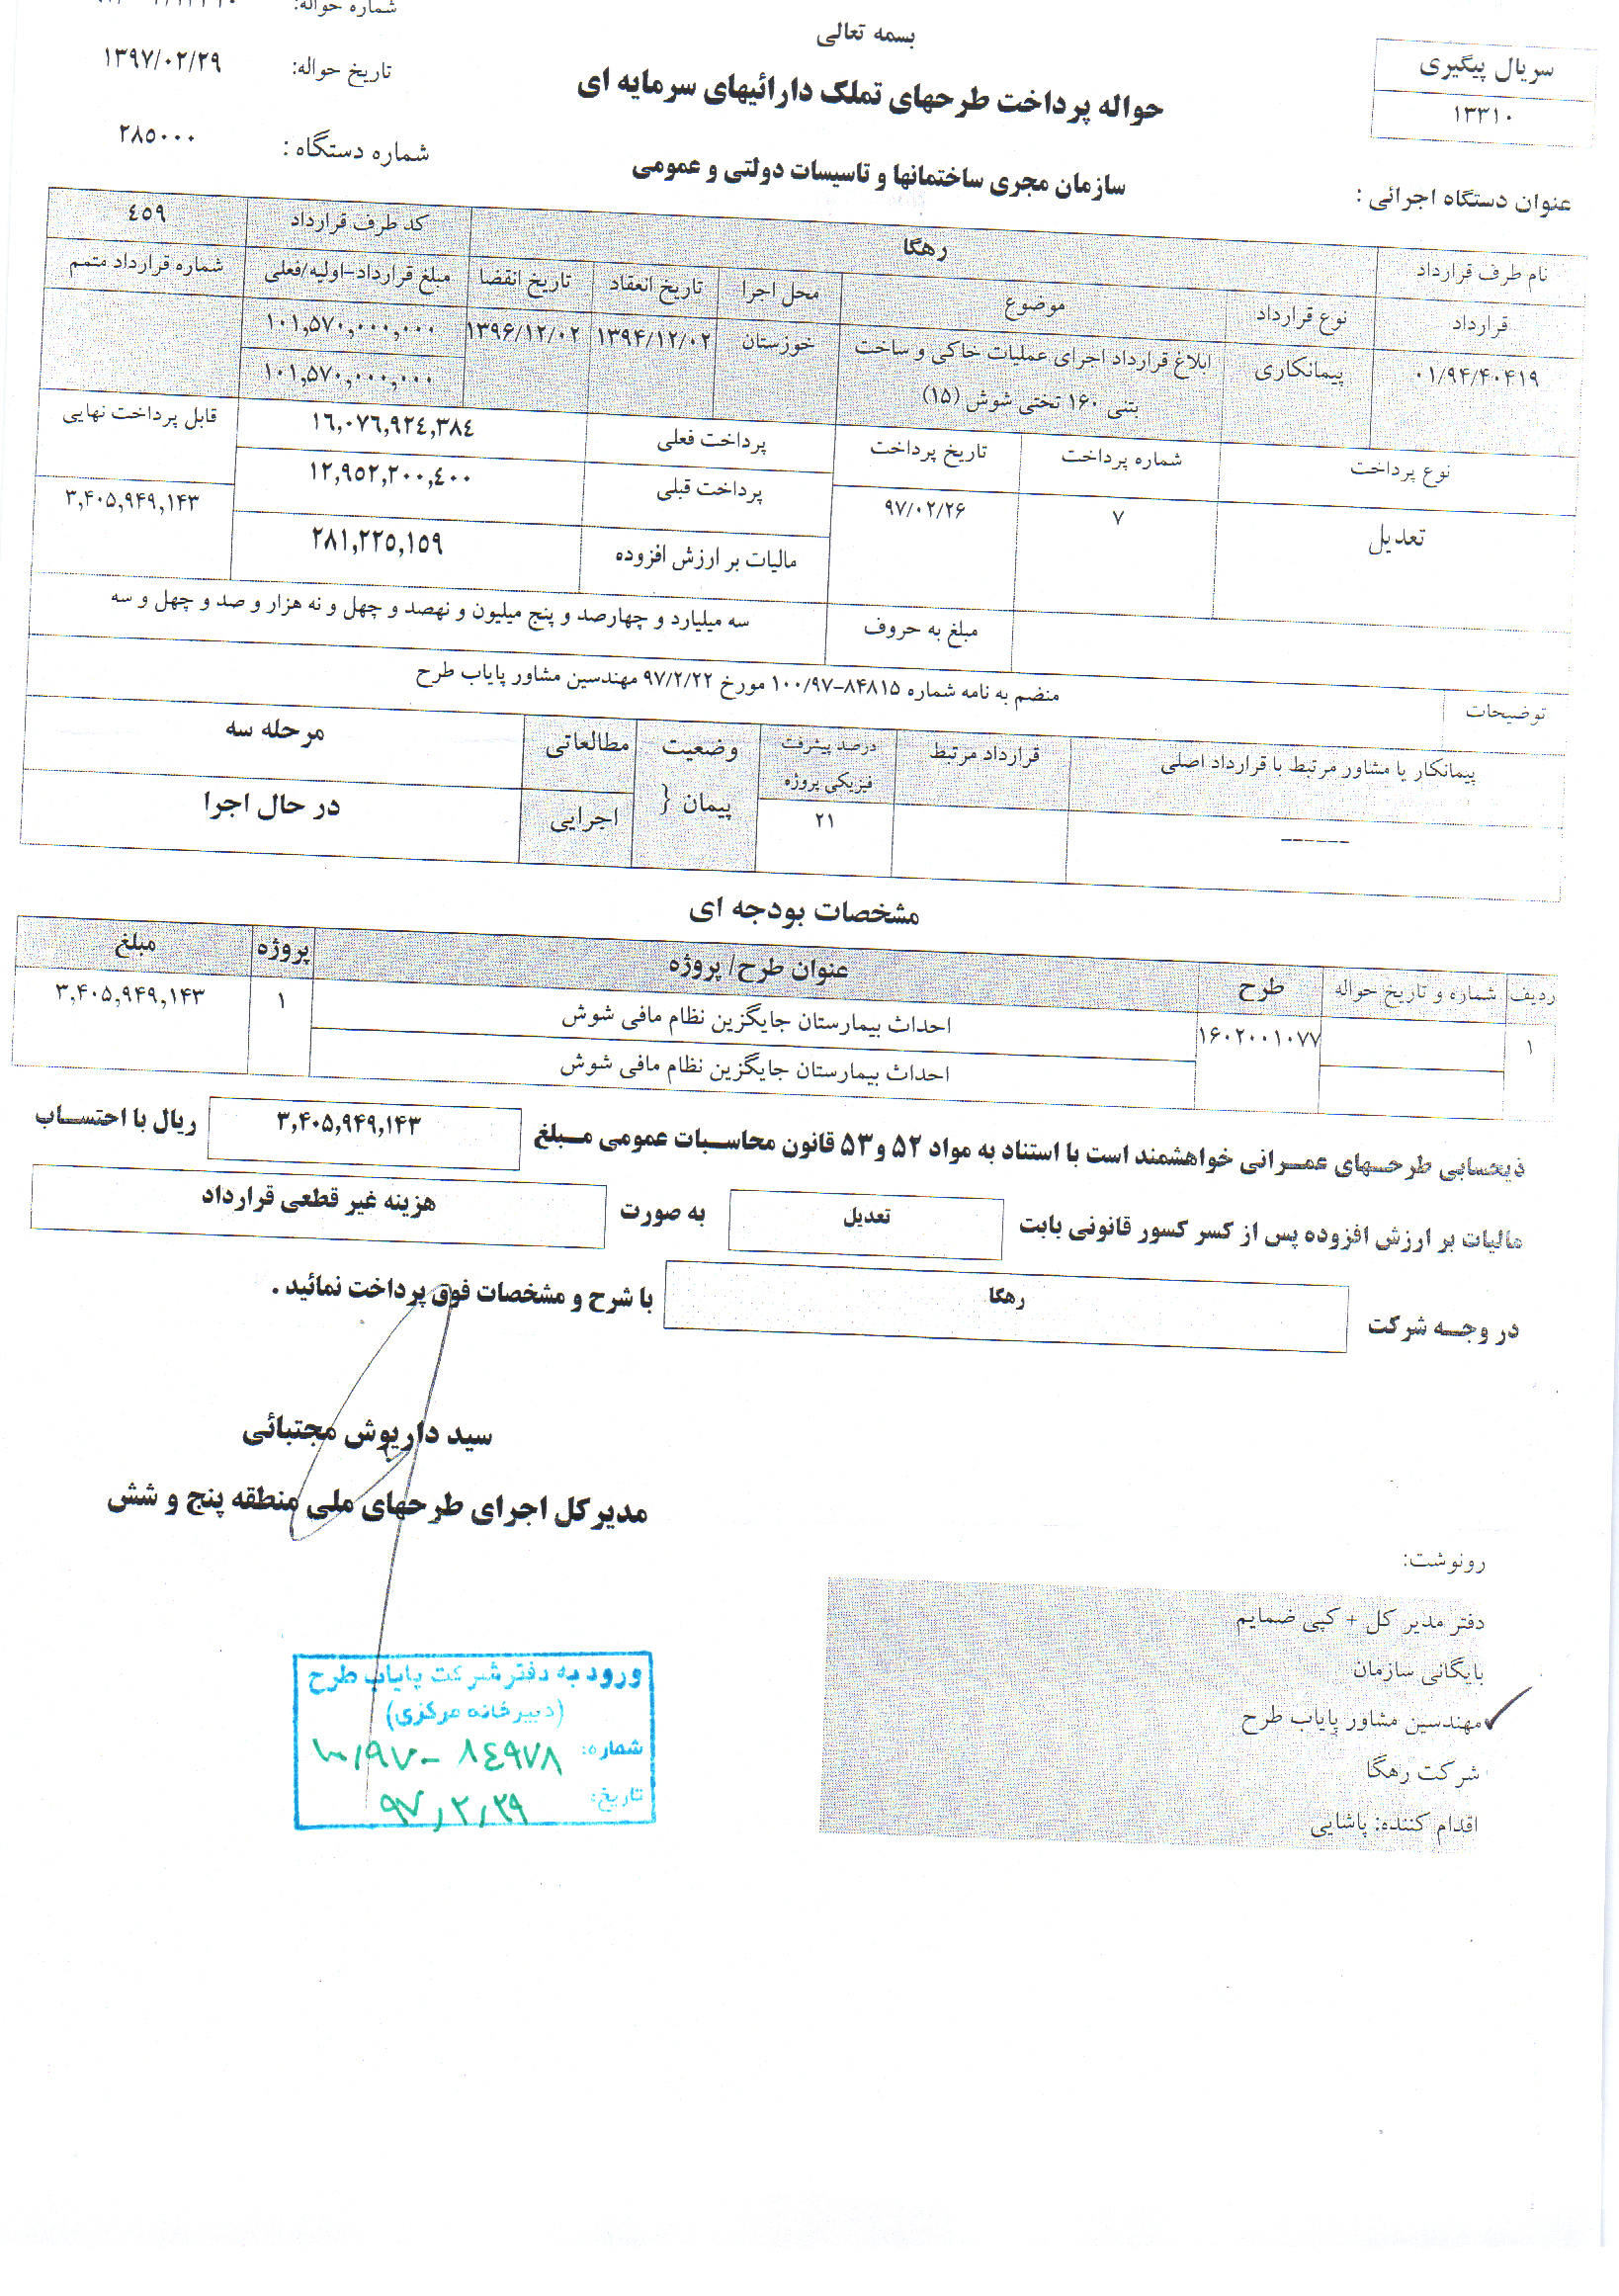 بسمه تعالی
شماره حواله:
سریال پیگیری
۱۳۳۱۰
تاریخ حواله: ۱۳۹۷/۰۲/۲۹
حواله پرداخت طرحهای تملک دارائیهای سرمایه ای
شماره دستگاه : ۲۸۵۰۰۰
عنوان دستگاه اجرائی : سازمان مجری ساختمانها و تاسیسات دولتی و عمومی
نام طرف قرارداد رهگا کد طرف قرارداد ۴۵۹
قرارداد نوع قرارداد موضوع محل اجرا تاریخ انعقاد تاریخ انقضا مبلغ قرارداد-اولیه/فعلی شماره قرارداد متمم
۰۱/۹۴/۴۰۴۱۹ پیمانکاری ابلاغ قرارداد اجرای عملیات خاکی و ساخت خوزستان ۱۳۹۴/۱۲/۰۲ ۱۳۹۶/۱۲/۰۲ ۱۰۱,۵۷۰,۰۰۰,۰۰۰
بتنی ۱۶۰ تختی شوش (۱۵) ۱۰۱,۵۷۰,۰۰۰,۰۰۰
نوع پرداخت شماره پرداخت تاریخ پرداخت پرداخت فعلی ۱۶,۰۷۶,۹۲۴,۳۸۴ قابل پرداخت نهایی
تعدیل ۷ ۹۷/۰۲/۲۶ پرداخت قبلی ۱۲,۹۵۲,۲۰۰,۴۰۰ ۳,۴۰۵,۹۴۹,۱۴۳
مالیات بر ارزش افزوده ۲۸۱,۲۲۵,۱۵۹
مبلغ به حروف سه میلیارد و چهارصد و پنج میلیون و نهصد و چهل و نه هزار و صد و چهل و سه
توضیحات منضم به نامه شماره ۸۴۸۱۵-۱۰۰/۹۷ مورخ ۹۷/۲/۲۲ مهندسین مشاور پایاب طرح
پیمانکار یا مشاور مرتبط با قرارداد اصلی قرارداد مرتبط درصد پیشرفت فیزیکی پروژه وضعیت پیمان { مطالعاتی مرحله سه
------ ۲۱ اجرایی در حال اجرا
مشخصات بودجه ای
ردیف شماره و تاریخ حواله طرح عنوان طرح/ پروژه پروژه مبلغ
۱ ۱۶۰۲۰۰۱۰۷۷ احداث بیمارستان جایگزین نظام مافی شوش ۱ ۳,۴۰۵,۹۴۹,۱۴۳
احداث بیمارستان جایگزین نظام مافی شوش
ذیحسابی طرحهای عمرانی خواهشمند است با استناد به مواد ۵۲ و ۵۳ قانون محاسبات عمومی مبلغ ۳,۴۰۵,۹۴۹,۱۴۳ ریال با احتساب
مالیات بر ارزش افزوده پس از کسر کسور قانونی بابت تعدیل به صورت هزینه غیر قطعی قرارداد
در وجه شرکت رهگا با شرح و مشخصات فوق پرداخت نمائید .
سید داریوش مجتبائی
مدیرکل اجرای طرحهای ملی منطقه پنج و شش
رونوشت:
دفتر مدیر کل + کپی ضمایم
بایگانی سازمان
مهندسین مشاور پایاب طرح
شرکت رهگا
اقدام کننده: پاشایی
ورود به دفتر شرکت پایاب طرح
(دبیرخانه مرکزی)
شماره: ۸۴۹۷۸ - ۱۰۰/۹۷
تاریخ: ۹۷/۲/۲۹